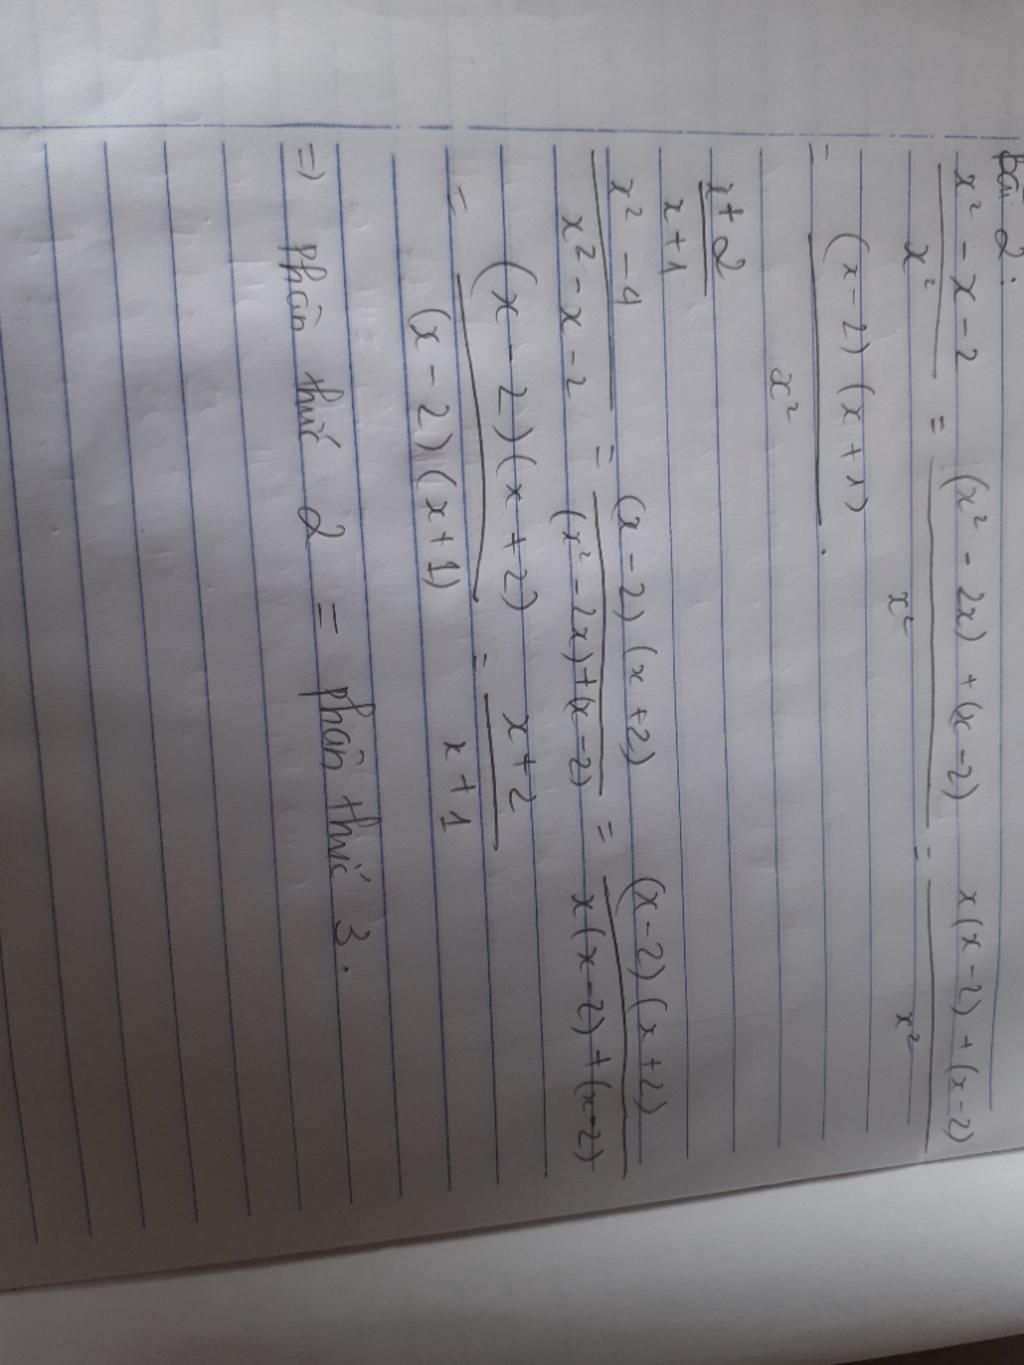 Bài 2:
x² - x - 2 / x² = (x² - 2x) + (x - 2) / x² = x(x - 2) + (x - 2) / x²
= (x - 2)(x + 1) / x².
x + 2 / x + 1
x² - 4 / x² - x - 2 = (x - 2)(x + 2) / (x² - 2x) + (x - 2) = (x - 2)(x + 2) / x(x - 2) + (x - 2)
= (x - 2)(x + 2) / (x - 2)(x + 1) = x + 2 / x + 1
=> phân thức 2 = phân thức 3.